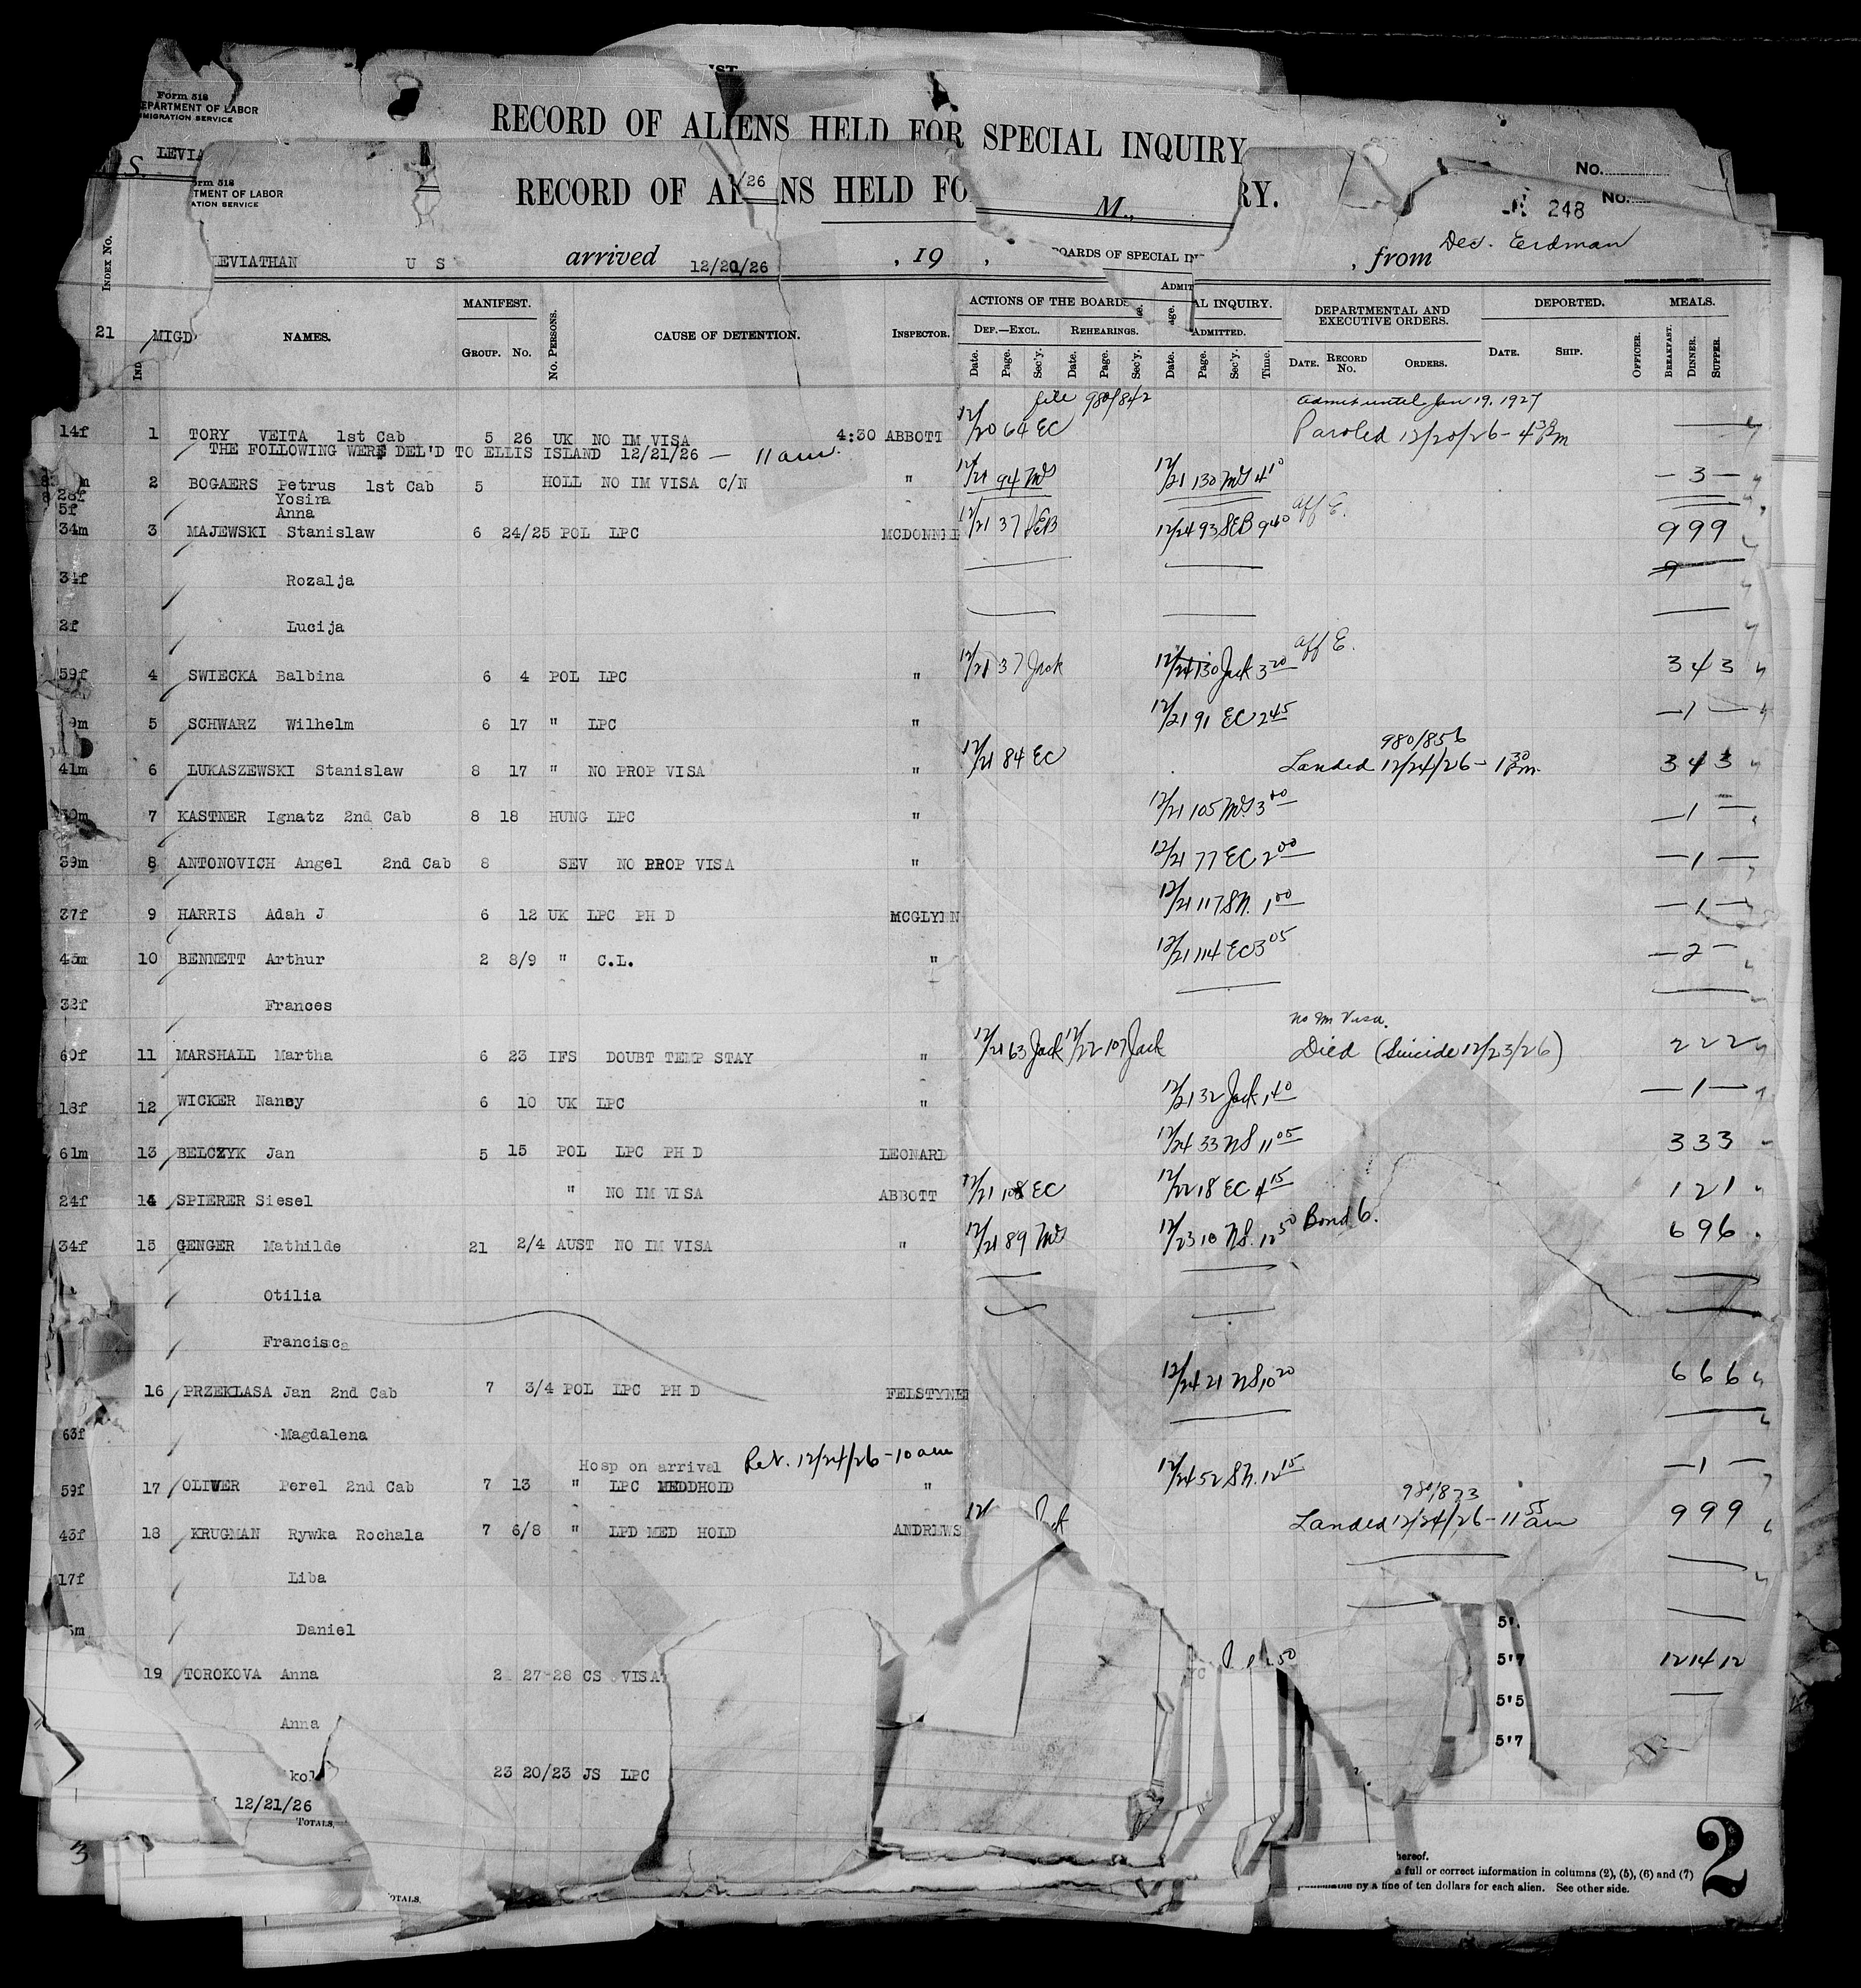 Form 518
EPARTMENT OF LABOR
MIGRATION SERVICE
RECORD OF ALIENS HELD FOR SPECIAL INQUIRY
No.
S.
LEVIA
rm 518
TMENT OF LABOR
ATION SERVICE
26
RECORD OF AL NS HELD FO RY.
M.,
No.
248
EVIATHAN U S arrived 12/20/26 , 19 , OARDS OF SPECIAL IN , from Dec. Erdman
INDEX No.
21 MIGD NAMES. MANIFEST. GROUP. No. No. PERSONS. CAUSE OF DETENTION. INSPECTOR.
ACTIONS OF THE BOARDS AL INQUIRY. DEPARTMENTAL AND EXECUTIVE ORDERS. DEPORTED. MEALS.
DEF.—EXCL. REHEARINGS. ADMITTED.
Date. Page. Sec'y. Date. Page. Sec'y. Date. Page. Sec'y. Time. DATE. RECORD No. ORDERS. DATE. SHIP. OFFICER. BREAKFAST. DINNER. SUPPER.
file 980/842 admit until Jan 19, 1927
14f 1 TORY VEITA 1st Cab 5 26 UK NO IM VISA 4:30 ABBOTT 12/20 64 EC Paroled 12/20/26 - 4 30 Pm
THE FOLLOWING WERE DEL'D TO ELLIS ISLAND 12/21/26 — 11 am.
m 2 BOGAERS Petrus 1st Cab 5 HOLL NO IM VISA C/N " 12/21 94 12/21 130 4 10 — 3 —
28f Yosina
5f Anna aff E.
34m 3 MAJEWSKI Stanislaw 6 24/25 POL LPC MCDONNEL 12/21 37 SEB 12/24 93 SEB 9 40 999
34f Rozalja
2f Lucija
aff E.
59f 4 SWIECKA Balbina 6 4 POL LPC " 12/21 37 Jack 12/24 130 Jack 3 20 3 4 3
9m 5 SCHWARZ Wilhelm 6 17 " LPC " 12/21 91 EC 2 45 — 1 —
980/856
41m 6 LUKASZEWSKI Stanislaw 8 17 " NO PROP VISA " 12/21 84 EC Landed 12/24/26 - 1 30 Pm. 3 4 3
39m 7 KASTNER Ignatz 2nd Cab 8 18 HUNG LPC " 12/21 105 3 00 — 1 —
39m 8 ANTONOVICH Angel 2nd Cab 8 SEV NO PROP VISA " 12/21 77 EC 2 00 — 1 —
37f 9 HARRIS Adah J 6 12 UK LPC PH D MCGLYNN 12/21 117 SN. 1 00 — 1 —
45m 10 BENNETT Arthur 2 8/9 " C.L. " 12/21 114 EC 3 05 — 2 —
32f Frances
no Im Visa.
60f 11 MARSHALL Martha 6 23 IFS DOUBT TEMP STAY " 12/21 63 Jack 12/22 107 Jack Died (Suicide 12/23/26) 2 2 2
18f 12 WICKER Nancy 6 10 UK LPC " 12/21 32 Jack 1 40 — 1 —
61m 13 BELCZYK Jan 5 15 POL LPC PH D LEONARD 12/24 33 NS 11 05 3 3 3
24f 14 SPIERER Siesel " NO IM VISA ABBOTT 12/21 108 EC 12/22 18 EC 4 15 1 2 1
34f 15 GENGER Mathilde 21 2/4 AUST NO IM VISA " 12/21 89 12/23 10 NS. 12 50 Bond 6. 6 9 6
Otilia
Francisca
16 PRZEKLASA Jan 2nd Cab 7 3/4 POL LPC PH D FELSTYNER 12/24 21 NS 10 20 6 6 6
63f Magdalena
Hosp on arrival Ret. 12/24/26 - 10 am
59f 17 OLIWER Perel 2nd Cab 7 13 " LPC MEDDHOLD " 12/24 52 SN. 12 15 — 1 —
980/873
43f 18 KRUGMAN Rywka Rochala 7 6/8 " LPD MED HOLD ANDREWS Landed 12/24/26 - 11 55 am 9 9 9
17f Liba
5m Daniel
5'7
19 TOROKOVA Anna 2 27-28 CS VISA 50 12 14 12
5'5
Anna
5'7
kol 23 20/23 JS LPC
12/21/26
TOTALS,
3
OTALS,
hereof.
full or correct information in columns (2), (5), (6) and (7)
by a fine of ten dollars for each alien. See other side.
2